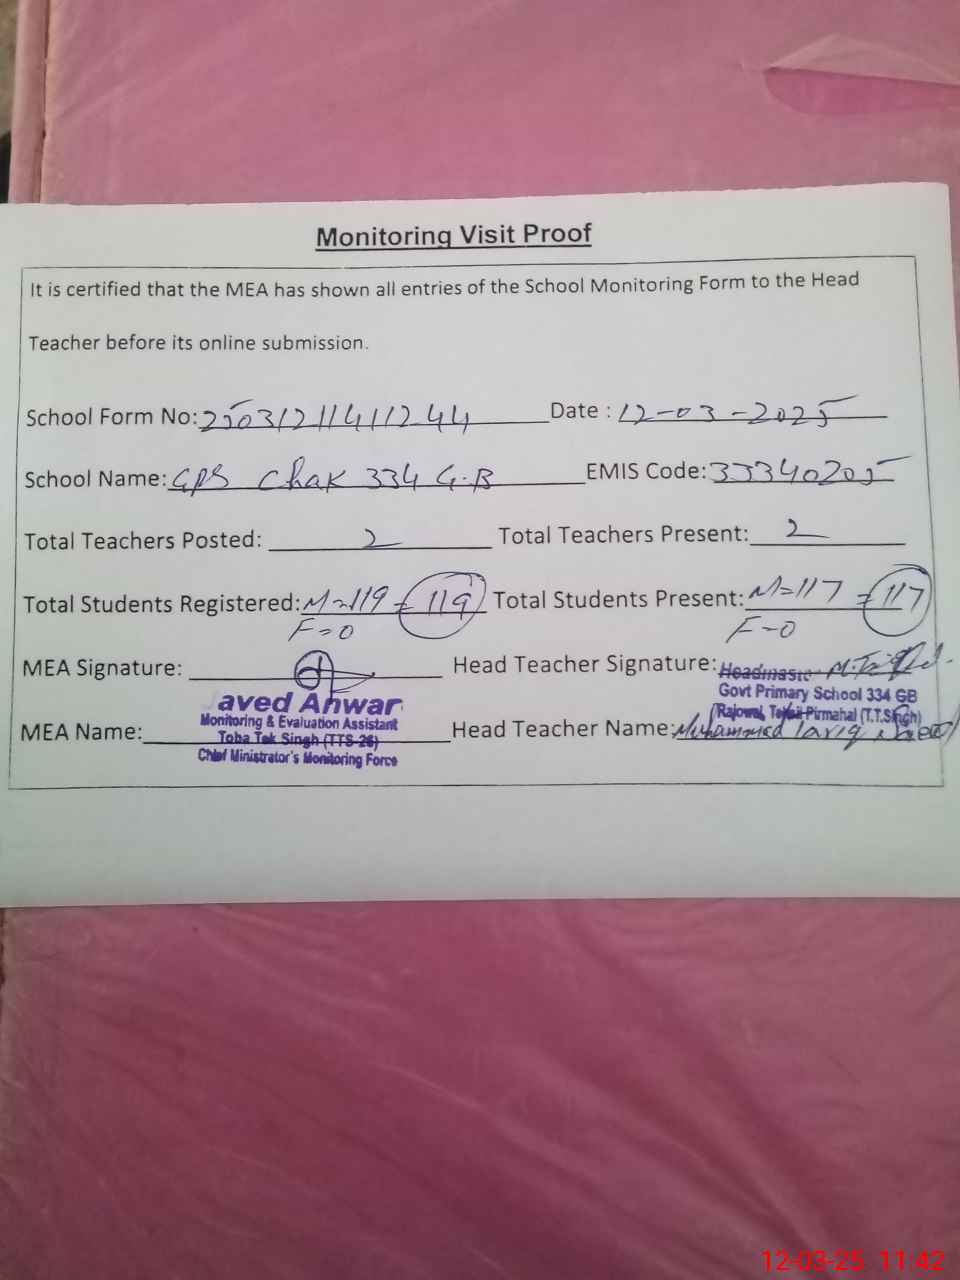 Monitoring Visit Proof
It is certified that the MEA has shown all entries of the School Monitoring Form to the Head
Teacher before its online submission.
School Form No: 25031211411244 Date : 12-03-2025
School Name: GPS Chak 334 G.B EMIS Code: 33340205
Total Teachers Posted: 2 Total Teachers Present: 2
Total Students Registered: M=119 = 119 Total Students Present: M=117 = 117
F=0 F=0
MEA Signature: Head Teacher Signature:
Headmaster
Govt Primary School 334 GB
(Rajowal, Tehsil Pirmahal (T.T.Singh)
aved Anwar
Monitoring & Evaluation Assistant
Toba Tek Singh (TTS-26)
Chief Ministrator's Monitoring Force
MEA Name: Head Teacher Name: Muhammad Tariq
12-03-25 11:42